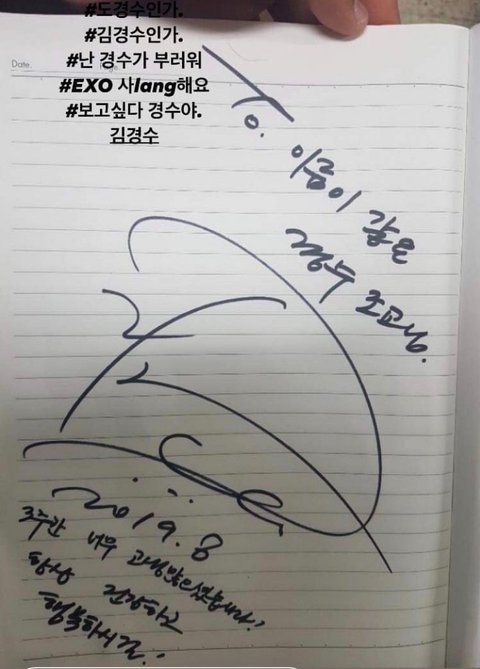 #도경수인가.
#김경수인가.
#난 경수가 부러워
#EXO 사lang해요
#보고싶다 경수야.
김경수
Date.
To. 이름이 같은
경수 조교님.
2019. 8
3주간 너무 고생많으셨습니다!
항상 건강하고
행복하시길!